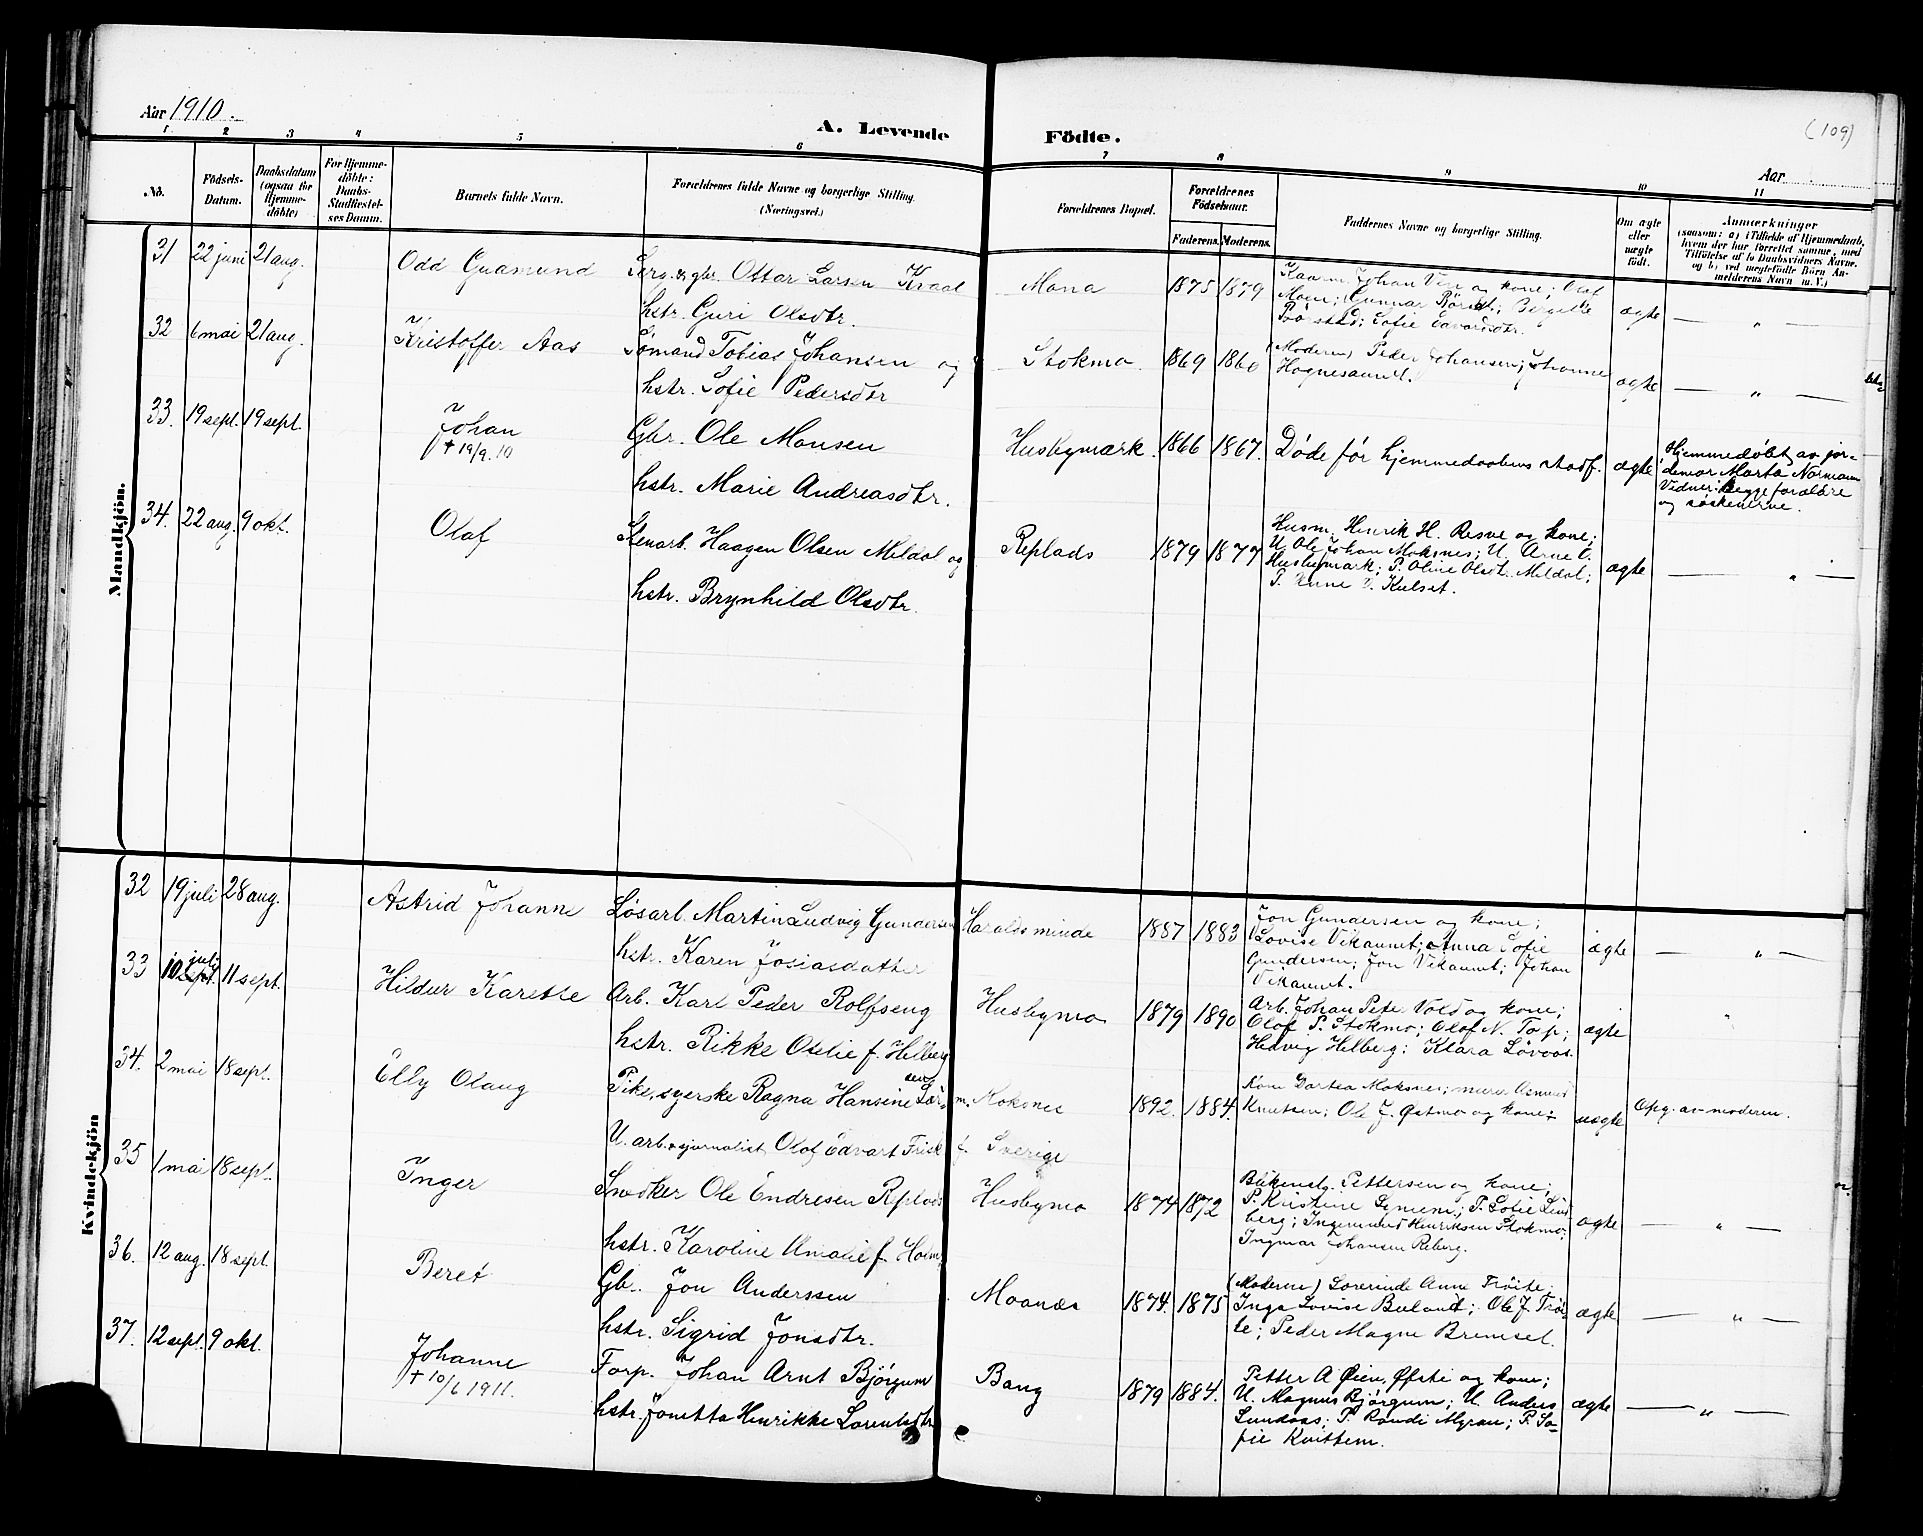 Aar 1910.
A. Levende Födte.
(109)
Aar
1 2 3 4 5 6 7 8 9 10 11
No.
Födsels-Datum.
Daabsdatum (ogsaa for Hjemme-döbte)
For Hjemme-döbte: Daabs-Stadfæstelsens Datum.
Barnets fulde Navn.
Forældrenes fulde Navne og borgerlige Stilling. (Næringsvei.)
Forældrenes Bopæl.
Forældrenes Födselsaar.
Faderens. Moderens.
Faddernes Navne og borgerlige Stilling.
Om ægte eller uægte født.
Anmærkninger (saasom: a) i Tilfælde af Hjemmedaab, hvem der har forrettet samme, med Tilføielse af to Daabsvidners Navne. og b) ved uægtefødte Börn Anmelderens Navn m. V.)
Mandkjön.
31 22 juni 21 aug. Odd Guamund
Larsen Kvaal
hstr. Guri Olsdtr.
Mona 1875 1879
ægte — „ —
32 6 mai 21 aug. Kristoffer Aas
Sømand Tobias Johansen og
hstr. Sofie Pedersdtr
Stokmo. 1869 1860
(Moderen) Peder Johansen;
ægte — „ —
33. 19 sept. 19 sept. Johan
† 19/9.10
Gbr. Ole Monsen
hstr. Marie Andreasdtr.
Husbymark. 1866 1867.
Døde før hjemmedaabens stadf.
ægte
Hjemmedøbt av jor-
demor Marta Normann
Vidner: Begge forældre
og søskenerne.
34. 22 aug. 9 okt. Olaf
Stenarb. Haagen Olsen Mildal og
hstr. Brynhild Olsdtr.
Replads 1879 1877
Husm. Henrik H. Resve og kone;
U. Ole Johan Moksnes; U. Arne O.
Husbymark; P. Oline Olsdt. Mildal;
ægte — „ —
Kvindekjön
32 19 juli 28 aug. Astrid Johanne
Løsarb. Martin Ludvig Gundersen
hstr. Karen Josiasdatter
Haraldsminde 1887 1883
Jon Gundersen og kone;
Lovise Vikaunet; Anna Sofie
Gundersen; Jon Vikaunet; Johan
Vikaunet.
ægte — „ —
33 10 juli sept. 11 sept. Hildur Karette
Arb. Karl Peder Rolfseng
hstr. Rikke Otelie f. Helberg
Husbymo 1879 1890
Arb. Johan Peter Vold og kone;
Olaf P. Stokmo; Olaf N. Torp;
Hedvig Helberg; Klara Løvaas.
ægte „
34. 2 mai 18 sept. Elly Olaug
Pike, syerske Ragna Hansine
U. arb. + journalist Olaf Edvart Frisk
m. Moksnes
f. Sverige
1892. 1884.
Dortea Moksnes; murer Asmund
Knutsen; Ole J. Østmo og kone;
uægte
Opg. av moderen.
35 1 mai 18 sept. Inger
Snedker Ole Endresen Replads
hstr. Karoline Amalie f. Holm
Husbymo 1874 1872
Blikenslg. Pettersen og kone;
P. Kristine P. Sofie Lind-
berg; Ingemund Henriksen Stokmo;
Ingmar Johansen Reberg.
ægte — „ —
36. 12 aug. 18 sept. Beret
Gb. Jon Anderssen
hstr. Sigrid Jonsdtr.
Moanes 1874. 1875
(Moderen) Lorentse Anne Trøite;
Inga Lovise Buland; Ole J. Trøi-
te; Peder Magne Bremset.
ægte — „ —
37. 12 sept. 9 okt. Johanne
† 10/6 1911.
Forp. Johan Arnt Bjørgum
hstr. Jonetta Henrikke Lorentsdtr
Bang 1879 1884.
Petter A Øien, Øfsti og kone;
U. Magnus Bjørgum; U. Anders
Lundaas; P. Randi Myran; P. So-
fie Kvittem.
ægte — „ —